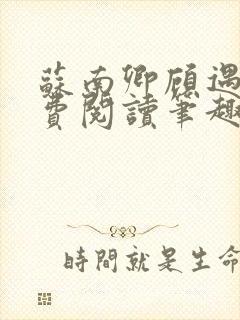 蘇南卿顧遇
費閱讀筆趣
時間就是生命